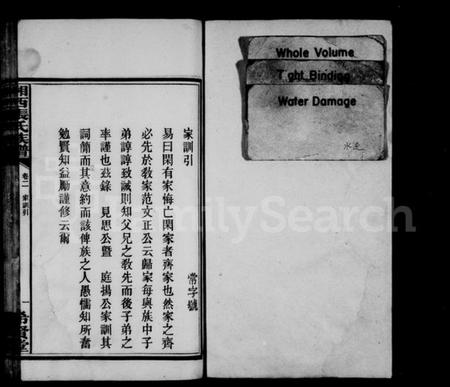 家訓引
常字號
易曰閑有家悔亡閑家者齊家也然家之齊
必先於教家范文正公云歸家每與族中子
弟諄諄致誡則知父兄之教先而後子弟之
率謹也茲錄 見思公暨 庭揚公家訓其
詞簡而其意約而該俾族之人愚懦知所奮
勉賢知益勵謹修云爾
湘西張氏族譜
卷二 家訓引
一
希賢堂
Whole Volume
Tight Binding
Water Damage
水迹
FamilySearch